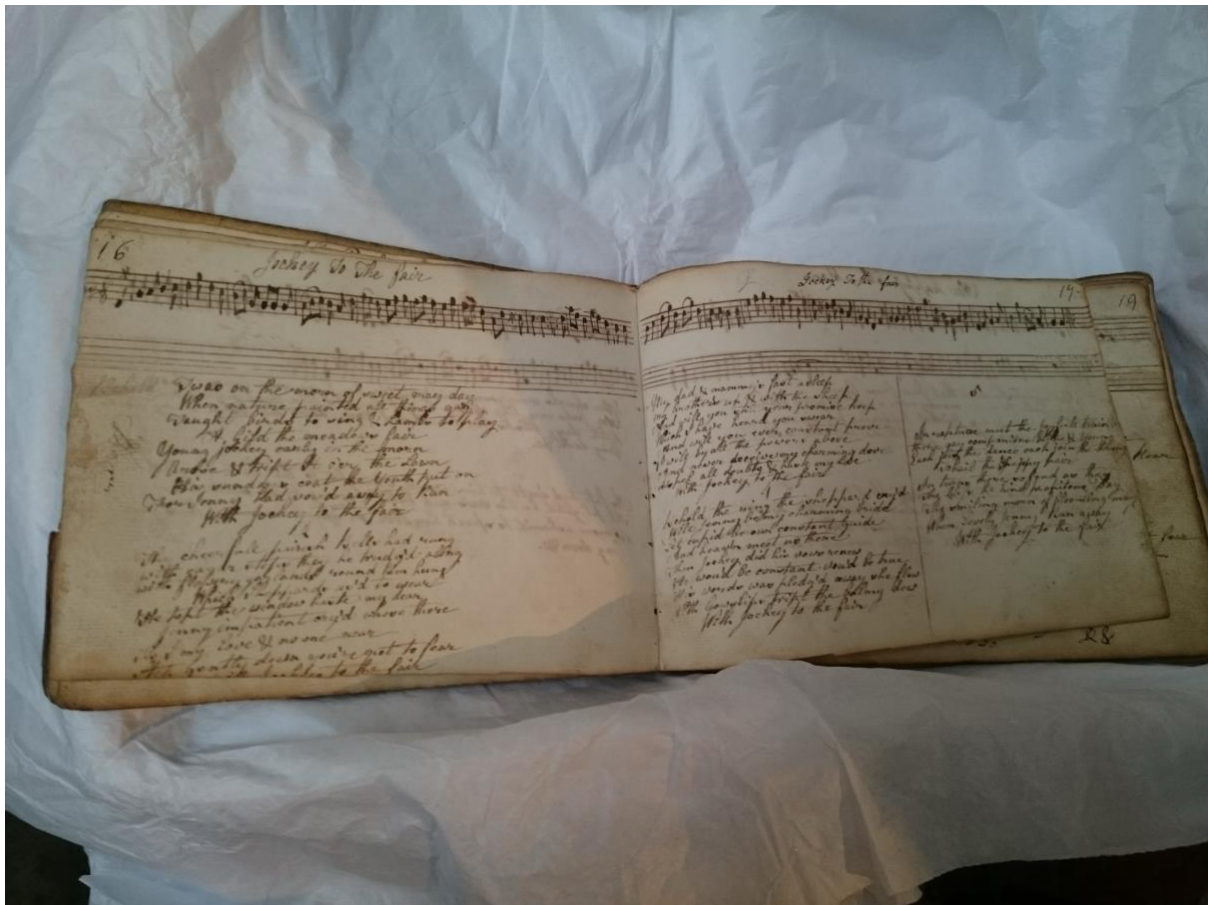 16
Jockey To The fair
Twas on the morn of sweet may day
When nature painted all things gay
Taught birds to sing & lambs to play
& gild the meadows fair
Young jockey early in the morn
Arose & tript it o'er the Lawn
His sunday s coat the youth put on
Jenny had vow'd away to run
With Jockey to the fair
The cheerfull parish bells had rung
with eager steps he trudg'd along
with flowery garlands round him hung
Which shepperds us'd to wear
He tapt the window haste my dear
Jenny impatient cry'd whose there
my love & no one near
Step gently down you've nought to fear
with Jockey to the fair
Jockey To the fair
17
19
My dad & mammy's fast asleep
my brother's up & with the sheep
And will you still your promise keep
Which I have heard you swear
And will you ever constant prove
I will by all the powers above
And never deceive my charming dove
dispel all doubts & haste my love
with Jockey to the fair
4
behold the ring the shepperd cry'd
Will Jenny be my charming bride
Let cupid be our constant guide
And heaven meet us there
Then Jockey did his vows renew
He wou'd be constant wou'd be true
His word was pledg'd away she flew
With Cowslips tript the balmy dew
With Jockey to the fair
5
In raptures meet the joyfull
their gay companions blithe & young
Each join the dance each join the throng
To hail the happy pair
In turns there's none so as they
They bless the kind propitious day
The smiling morn of blooming may
When lovely Jenny Ran away
With Jockey to the fair
fair
&&